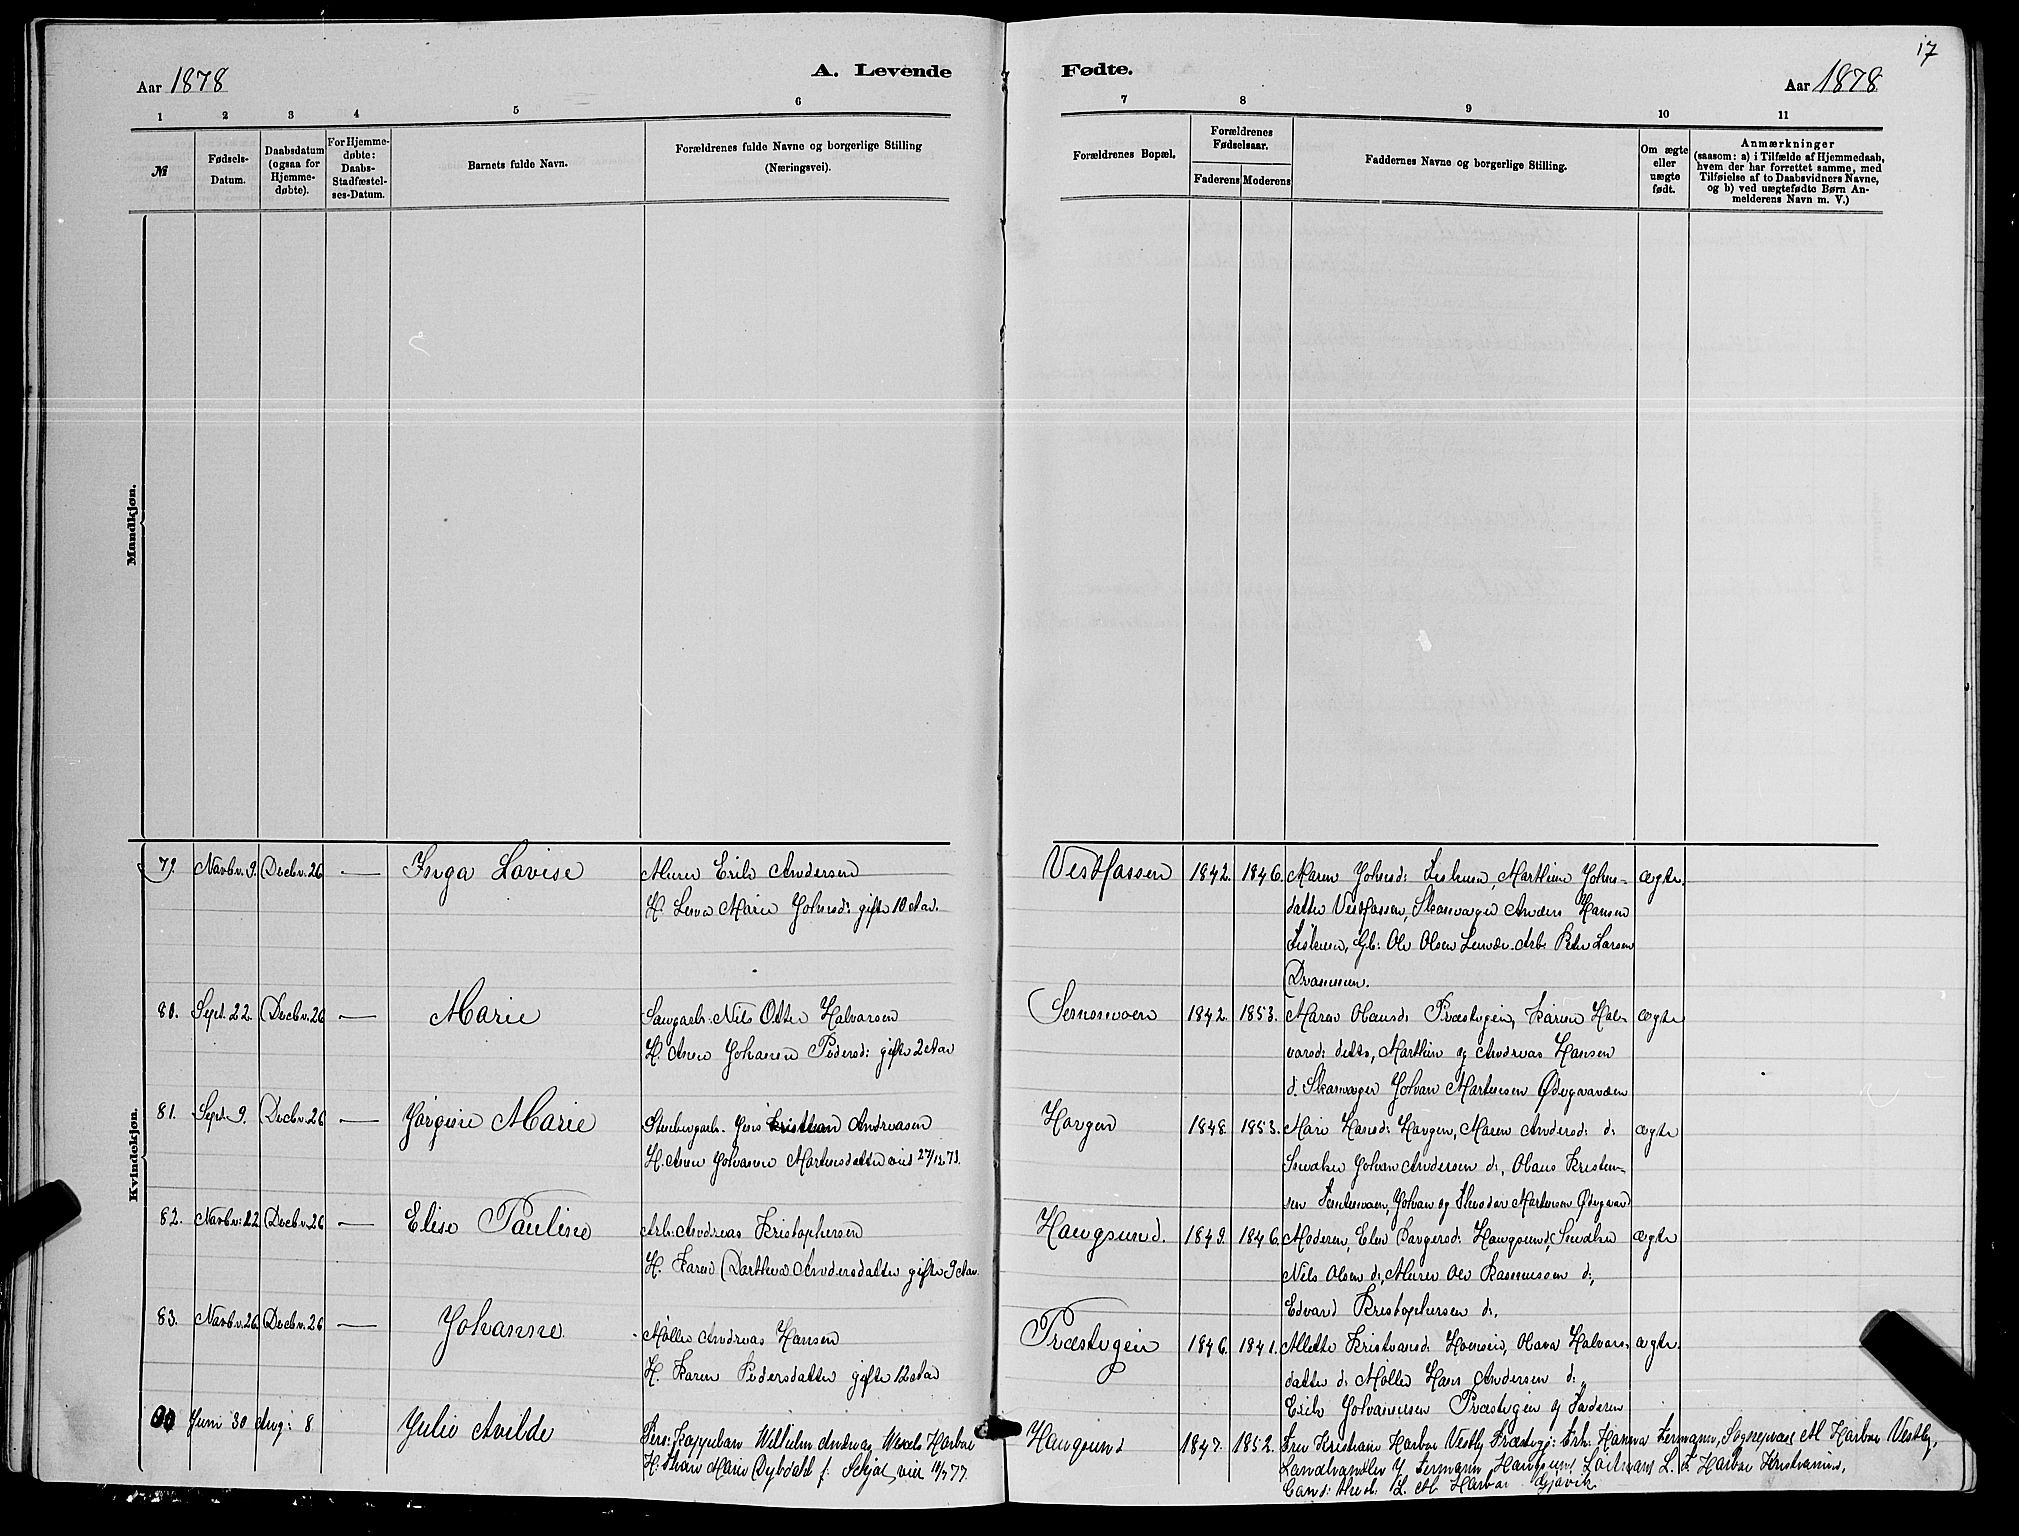 17
Aar 1878
A. Levende
Fødte.
Aar 1878
1 2 3 4 5 6
7 8 9 10 11
№
Fødsels-
Datum.
Daabsdatum
(ogsaa for
Hjemme-
døbte).
For Hjemme-
døbte:
Daabs-
Stadfæstel-
ses-Datum.
Barnets fulde Navn.
Forældrenes fulde Navne og borgerlige Stilling
(Næringsvei).
Forældrenes Bopæl.
Forældrenes
Fødselsaar.
Faderens
Moderens
Faddernes Navne og borgerlige Stilling.
Om ægte
eller
uægte
født.
Anmærkninger
(saasom: a) i Tilfælde af Hjemmedaab,
hvem der har forrettet samme, med
Tilføielse af to Daabsvidners Navne,
og b) ved uægtefødte Børn An-
melderens Navn m. V.)
Mandkjøn.
Kvindekjøn.
79. Novbr. 9. Decbr. 26 — Inga Lovise
Murer Erik Andersen
H. Marie Johnsd: gifte 10 Aar.
Vestfossen 1842. 1846. ægte.
Maren Johnsd: Marthine Johns-
datter Vestfossen, Anders Hansen
Gb: Ole Olsen Arb. Peder Larsen
80. Sept. 22. Decbr. 26 — Marie
Nils Otter Halvorsen
H. Anne Johanne Pedersd: gifte 2 Aar
1842. 1853. ægte
Maren Præstegjen, Karen Hal-
vorsd: detto, Marthin og Andreas Hansen
d. Johan Martinsen
81. Sept. 9. Decbr. 26 — Jørgine Marie
Jens Kristian Andreasen
H. Anne Johanne Martinsdatter viet 27/12 73.
Horgen 1848. 1853. ægte
Mari Hansd: Horgen, Maren Andersd: d:
Snedker Johan Andersen d:, Olaus Kristen-
sen Johan og Theodor Martinsen
82. Novbr. 22 Decbr. 26 — Elise Pauline
Arb: Andreas Kristophersen
H. Karen Dorthea Andersdatter gifte 9 Aar.
Haugsund. 1849. 1846. ægte
Moderen, Elen Haugsund, Snedker
Nils Olsen d:, Murer Ole Rasmussen d:,
Edvard Kristophersen d:,
83. Novbr. 26. Decbr. 26 — Johanne
Møller Andreas Hansen
H. Karen Pedersdatter gifte 12 Aar
Præstegjen 1846. 1841. ægte.
Alette Kristiansd: Olava Halvors-
datter d: Møller Hans Andersen d:,
Erik Johannesen Præstegjen og Faderen
Juni 30 Aug: 8 Julie Avilde
Pers: Kappellan Wilhelm Andreas Wexels Harboe
H. Thora Marie Dybdahl f. viet 11/7 77.
Haugsund 1847. 1852.
Fru Kristiane Harboe Vestby Præstegd: Frk. Hanna Hermann, Sognepræst M Harboe Vestby,
Landhandler Hermann, Haugsund, L. Harboe Kristiania,
Cand: L. M Harboe Gjøvik